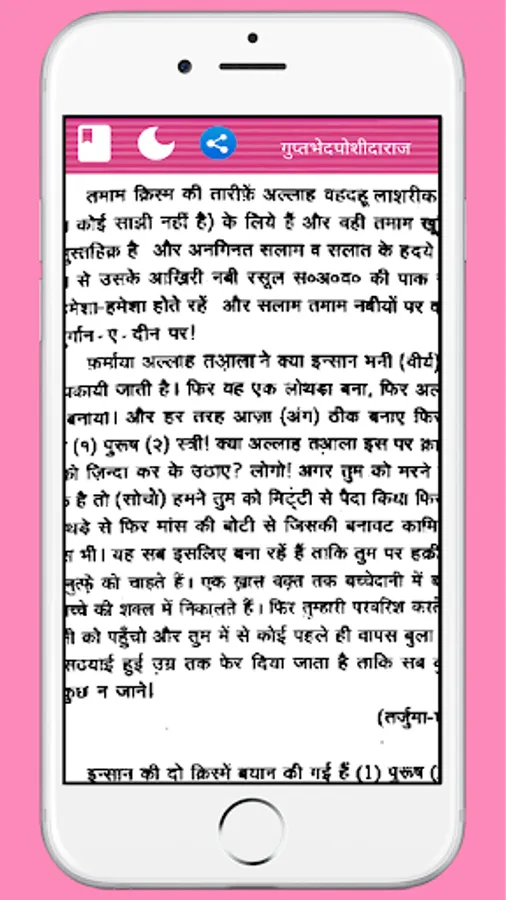 गुप्तभेदपोशीदाराज
तमाम क़िस्म की तारीफ़ें अल्लाह वहदहू लाशरीक
कोई साझी नहीं है) के लिये हैं और वही तमाम
है और अनगिनत सलाम व सलात के हदये
से उसके आख़िरी नबी रसूल स०अ०व० की पाक
मेशा-हमेशा होते रहें और सलाम तमाम नबीयों पर
र्गान - ए - दीन पर!
फ़र्माया अल्लाह तआ़ला ने क्या इन्सान मनी (वीर्य)
पकायी जाती है। फिर यह एक लोथड़ा बना, फिर अल
बनाया। और हर तरह आज़ा (अंग) ठीक बनाए फिर
(१) पुरूष (२) स्त्री! क्या अल्लाह तआ़ला इस पर
को ज़िन्दा कर के उठाए? लोगो! अगर तुम को मरने
है तो (सोचो) हमने तुम को मिट्टी से पैदा किया फिर
थड़े से फिर मांस की बोटी से जिसकी बनावट कामि
भी। यह सब इसलिए बना रहें हैं ताकि तुम पर हक़ी
नुत्फ़े को चाहते हैं। एक ख़ास वक़्त तक बच्चेदानी में
च्चे की शक्ल में निकालते हैं। फिर तुम्हारी परवरिश करते
को पहुँचो और तुम में से कोई पहले ही वापस बुला
सठयाई हुई उम्र तक फेर दिया जाता है ताकि सब
कुछ न जाने।
(तर्जुमा-
इन्सान की दो क़िस्में बयान की गई हैं (1) पुरूष